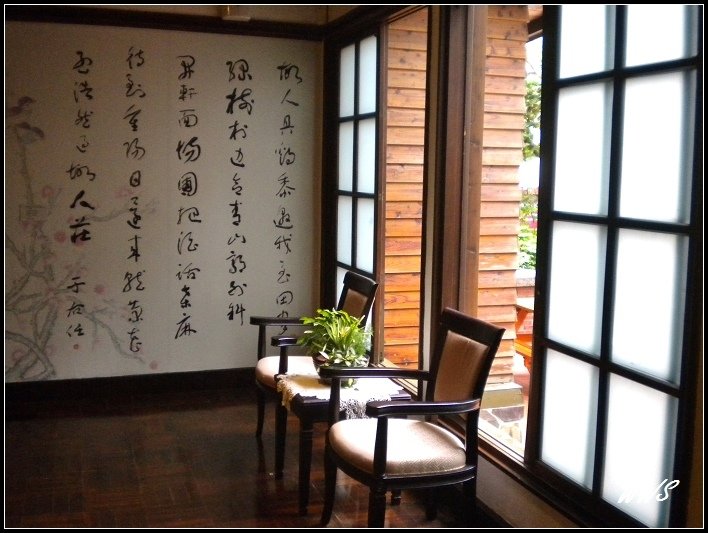 故人具鷄黍邀我至田家
綠樹村邊合青山郭外斜
開軒面場圃把酒話桑麻
待到重陽日還來就菊花
孟浩然過故人莊
于右任